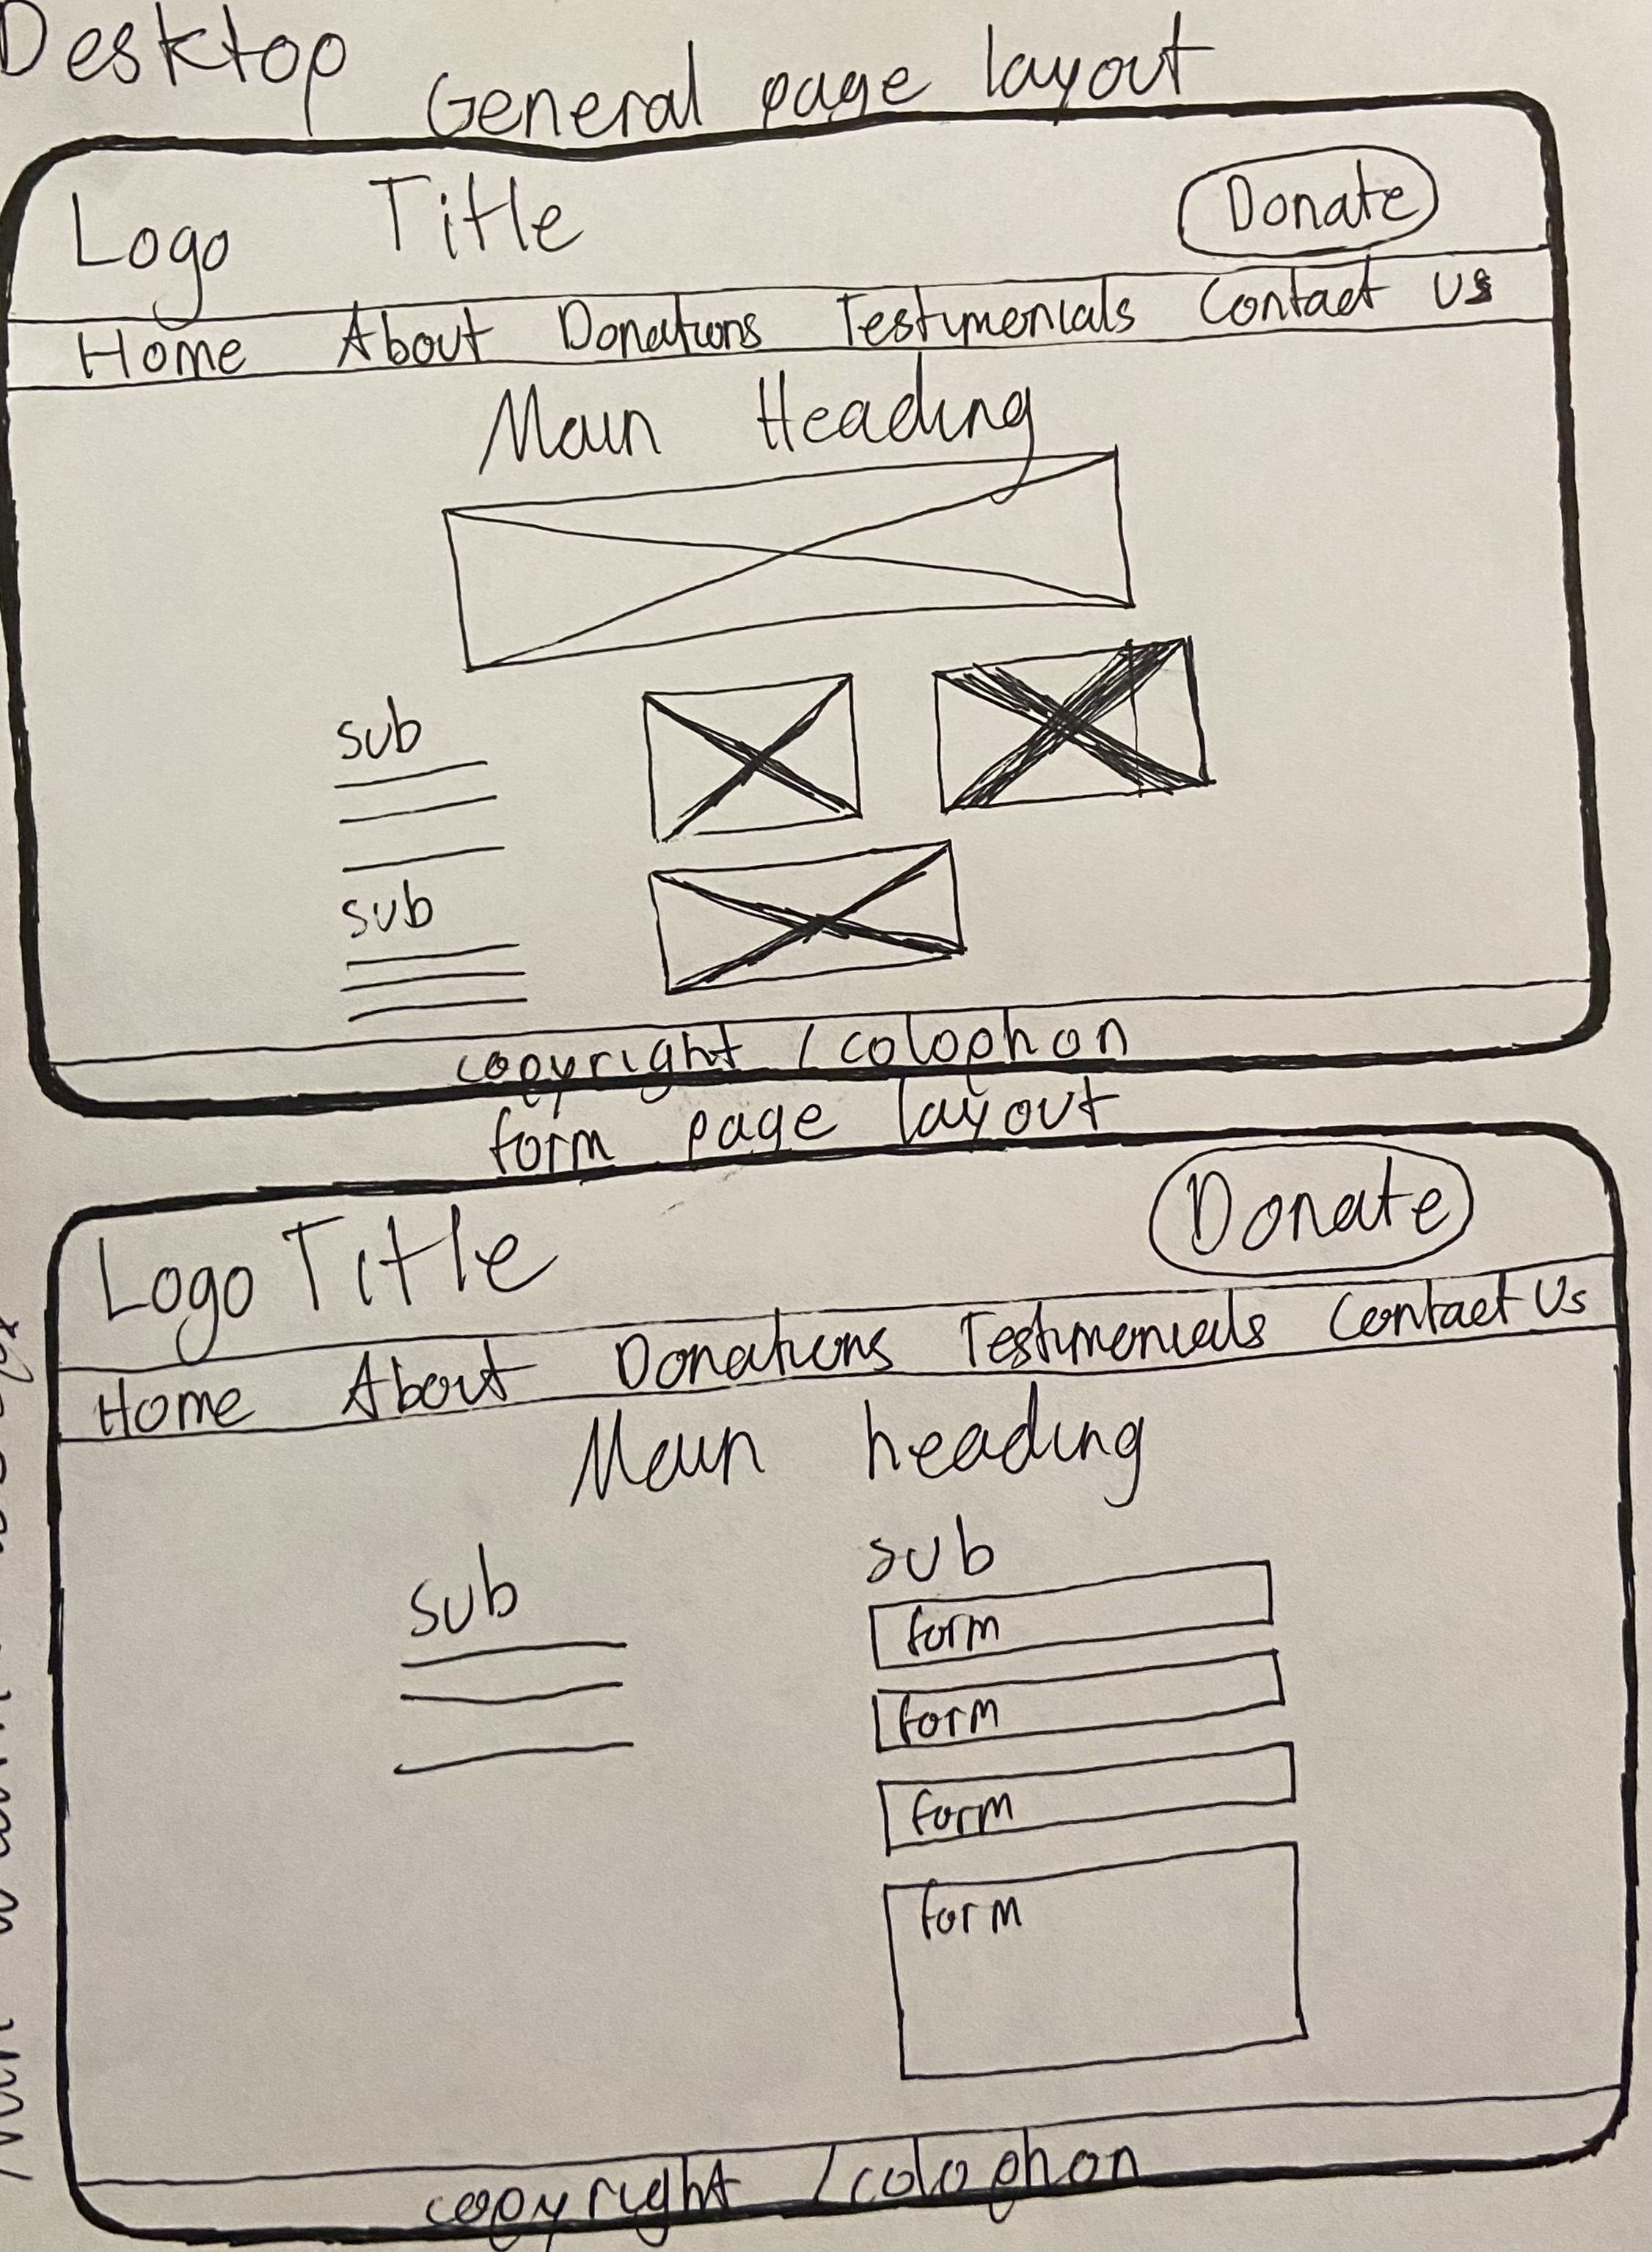 Desktop
General page layout
Logo Title Donate
Home About Donations Testymonials Contact Us
Main Heading
sub
sub
copyright / colophon
form page layout
Logo Title Donate
Home About Donations Testimonials Contact Us
Main heading
sub
sub
form
form
form
form
copyright / colophon